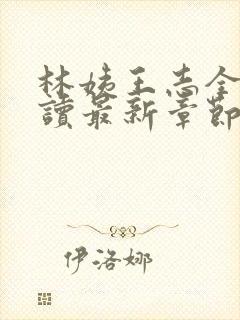 林姨王志全
讀最新章節
伊洛娜